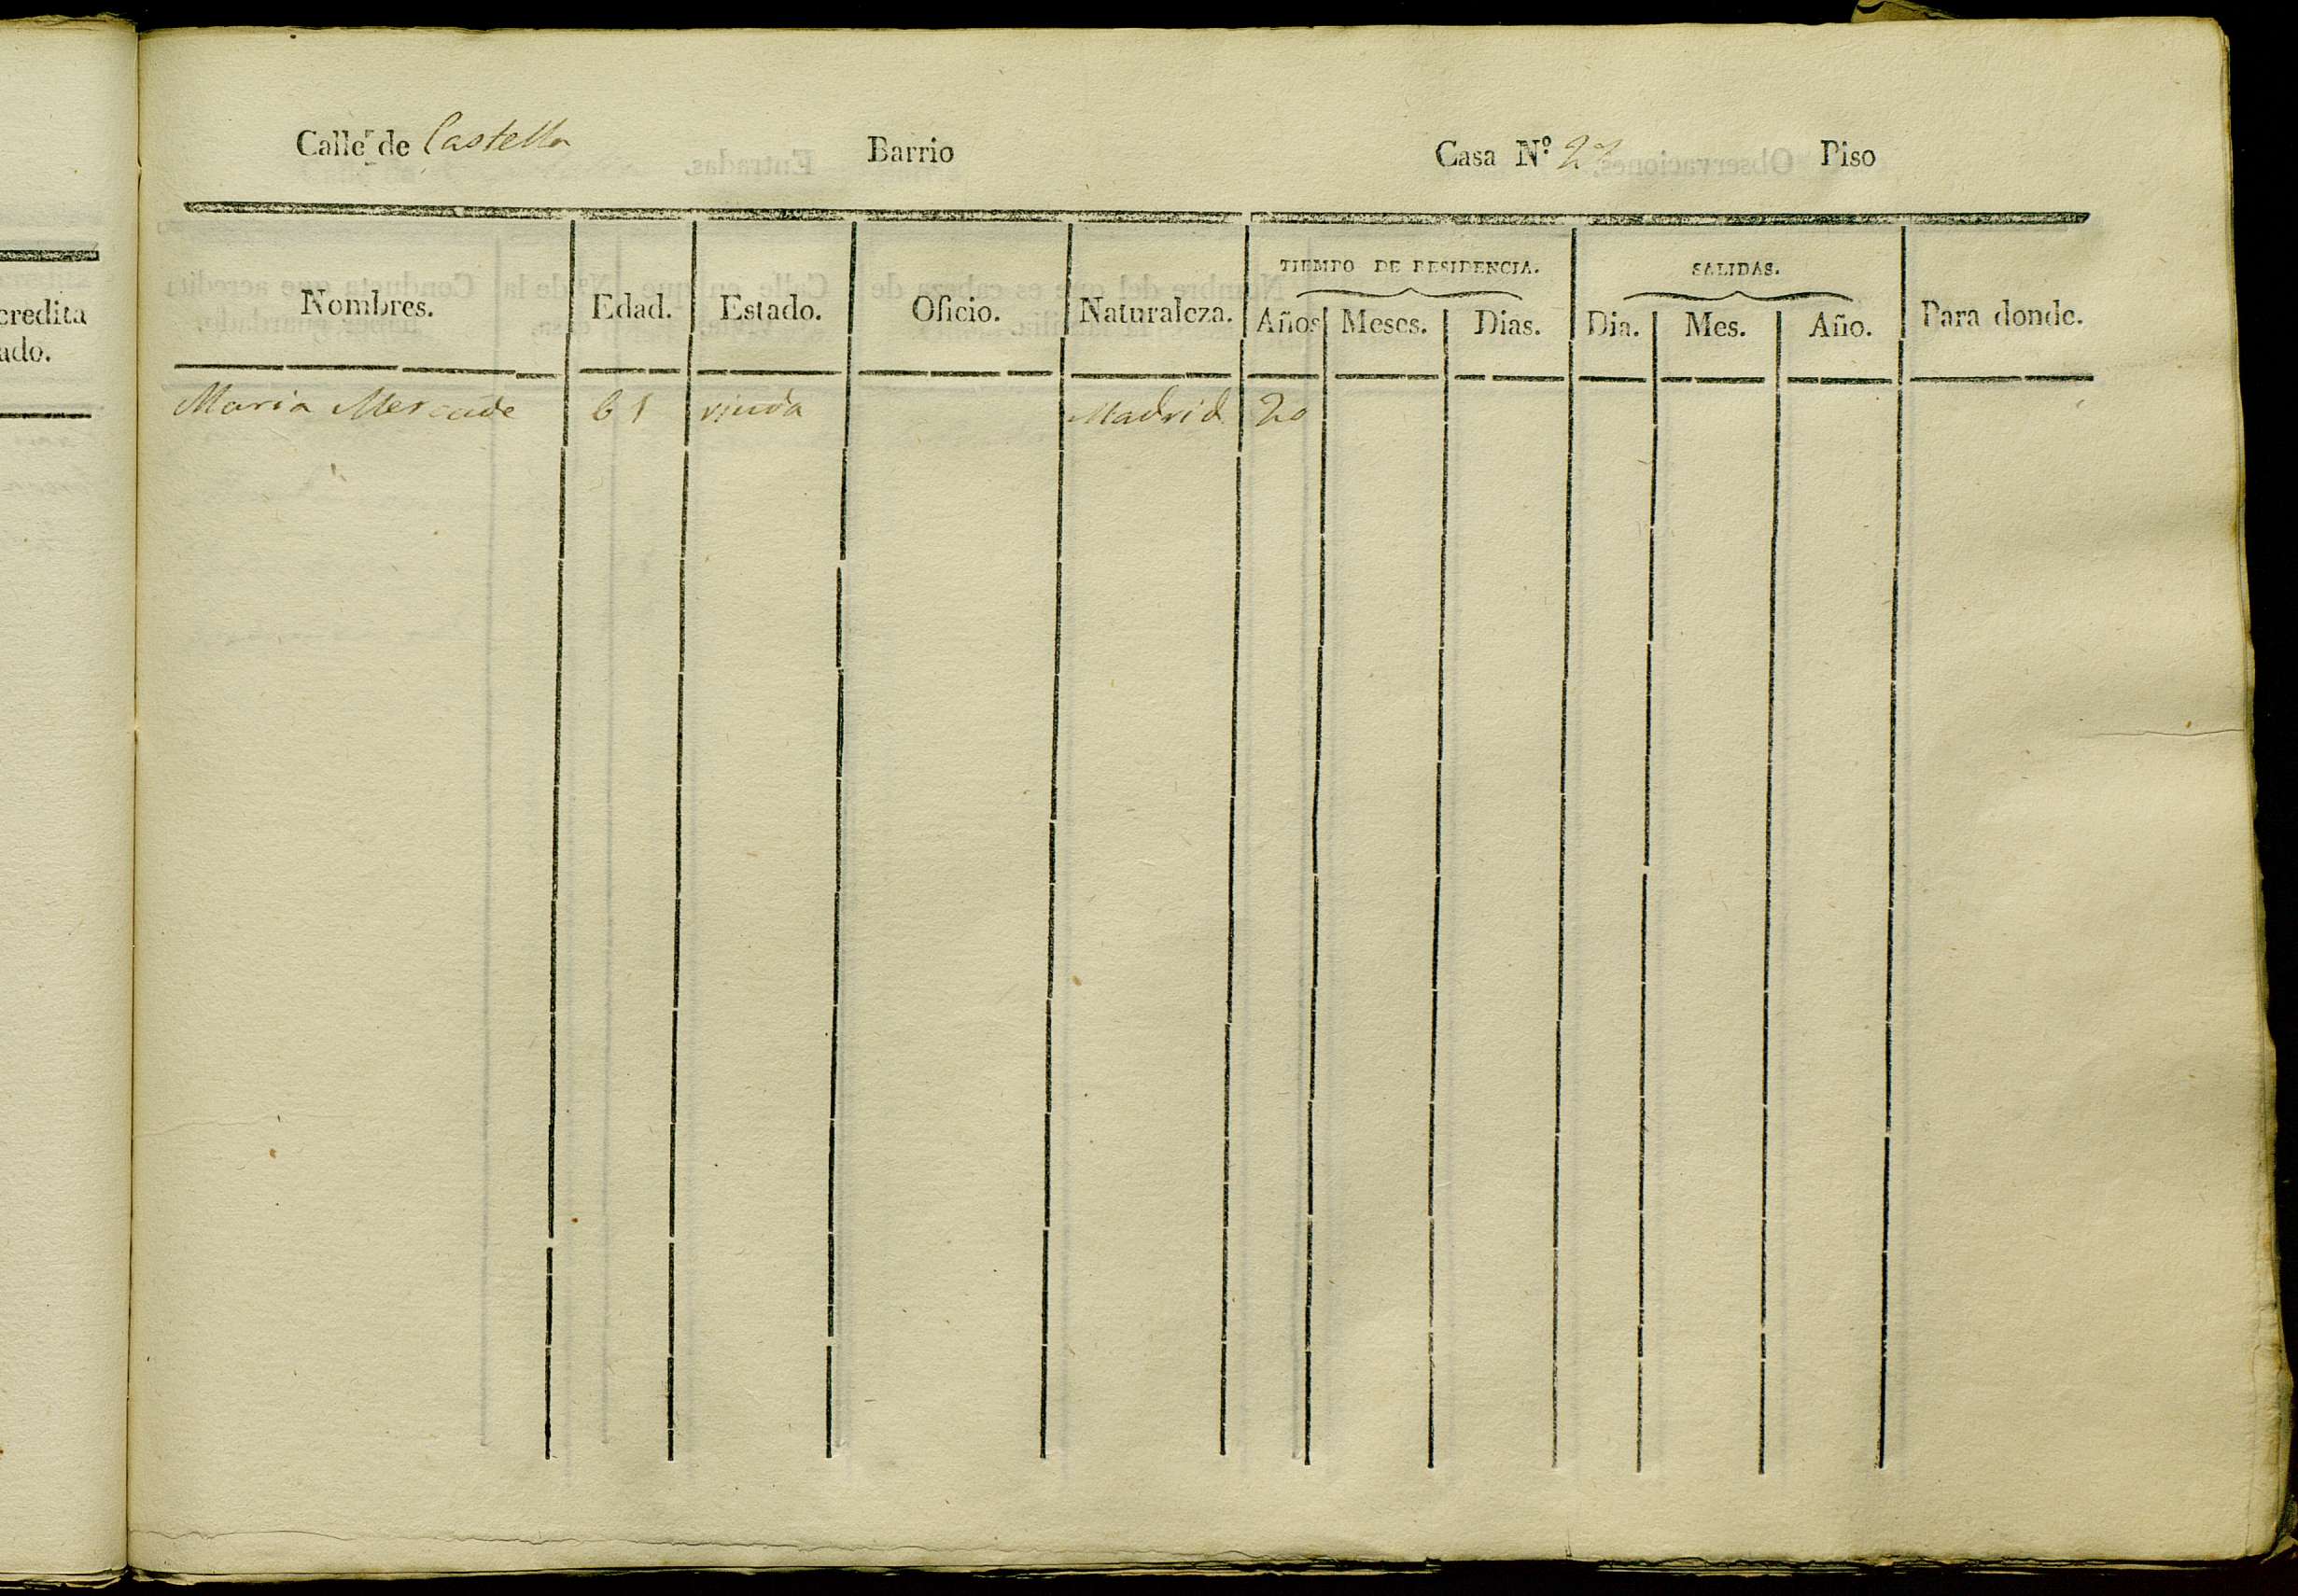 Calle de Castella Barrio Casa Nº Piso
TIEMPO DE RESIDENCIA. SALIDAS.
Nombres. Edad. Estado. Oficio. Naturaleza. Años Meses. Dias. Dia. Mes. Año. Para donde.
Maria Mercade 61 viuda Madrid 20
credita
ado.